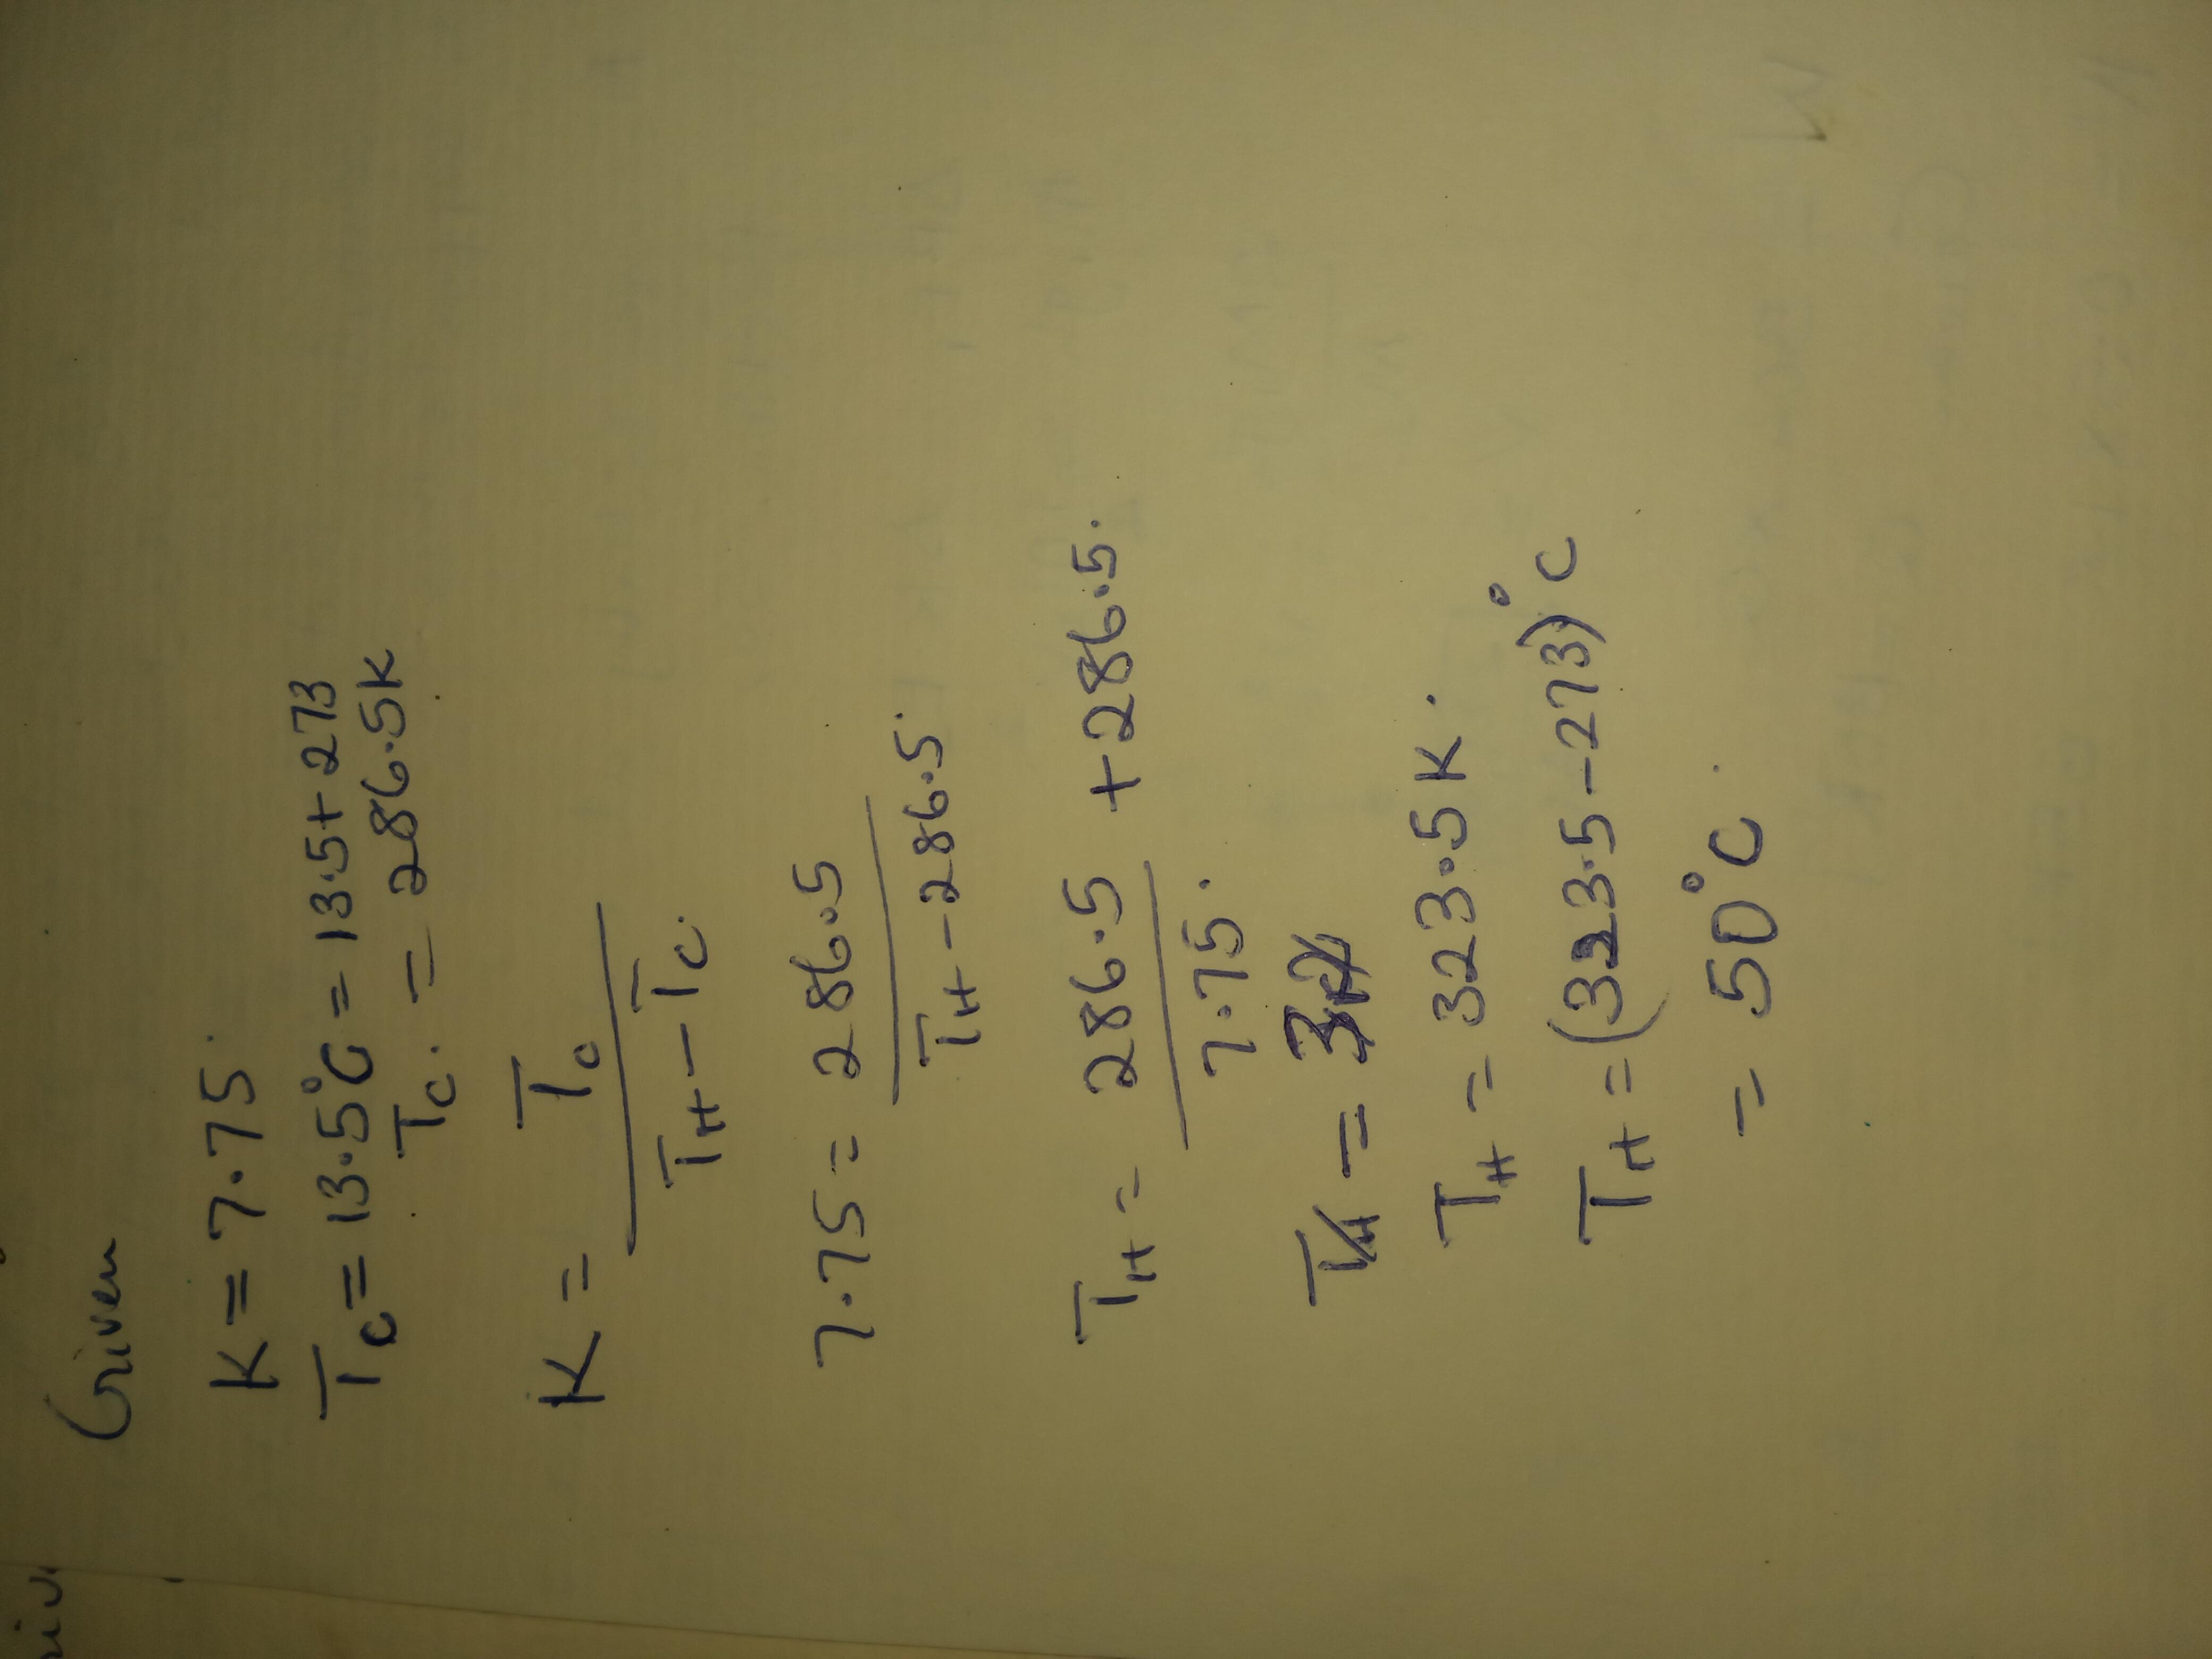 Given
K = 7.75
Tc = 13.5°C = 13.5 + 273
Tc. = 286.5K
K = Tc / TH - Tc.
7.75 = 286.5 / TH - 286.5.
TH = 286.5 / 7.75. + 286.5.
TH = 323.5 K.
TH = (323.5 - 273)°C
= 50°C